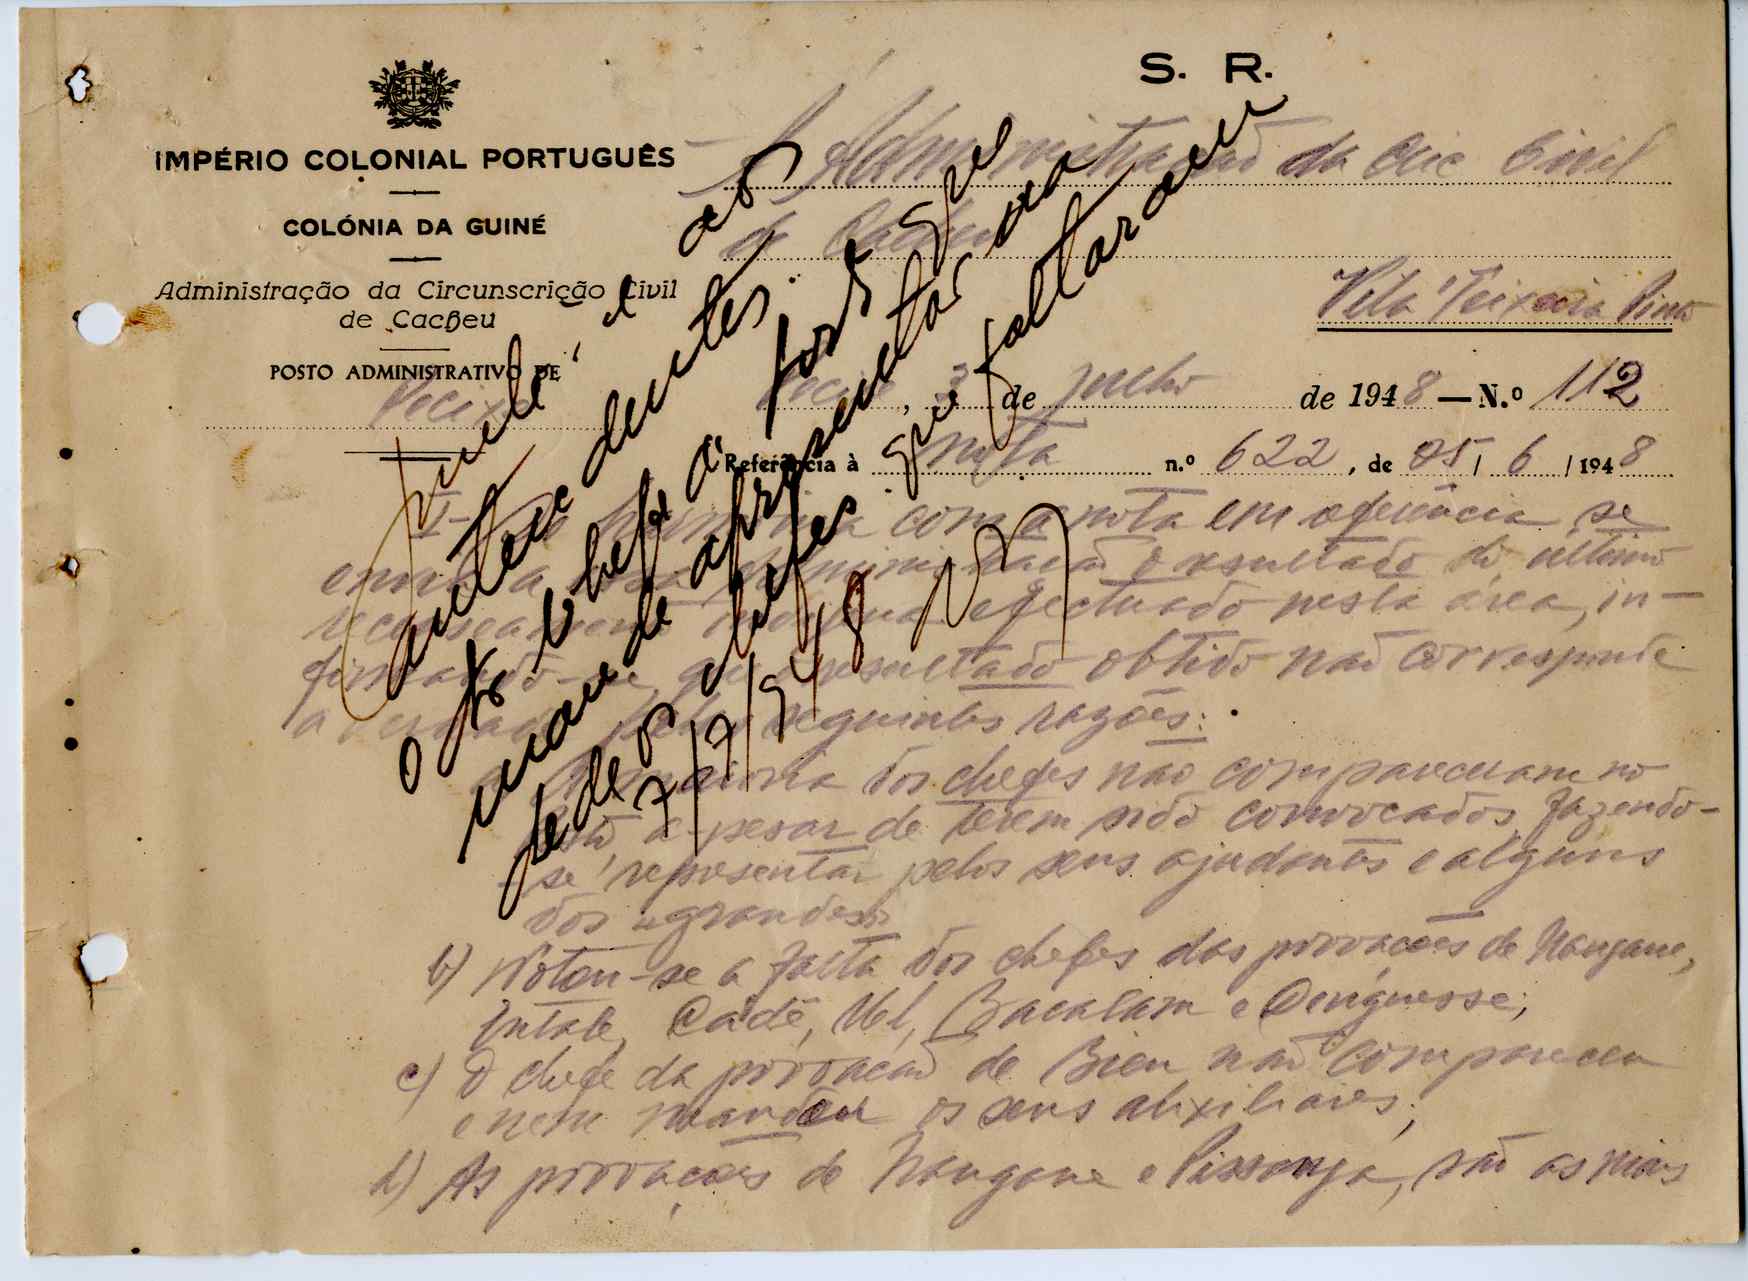 S. R.
IMPÉRIO COLONIAL PORTUGUÊS
COLÓNIA DA GUINÉ
Administração da Circunscrição Civil
de Cacheu
POSTO ADMINISTRATIVO DE
Pecixe
À Administração da Circ Civil
de Cacheu
Vila Teixeira Pinto
Pecixe, 3 de Julho de 1948 — N.º 112
Referência à nota n.º 622, de 25/6/1948
I- com a nota em referência se
envia a administração o resultado do último
recenseamento efectuado nesta área, in-
formando-se, que o resultado obtido não corresponde
a verdade pelas seguintes razões:
a) A maioria dos chefes não compareceram no
Posto a-pesar de terem sido convocados, fazendo-
se representar pelos seus ajudantes e alguns
dos «grandes»
b) Notou-se a falta dos chefes das povoações de Nangane,
Intate, Cadé, Uel, Bacalam e
c) O chefe da povoação de Bien não compareceu
e nem mandou os seus auxiliares;
d) As povoações de Nangane e são as mais
Junte é aos
antecedentes.
o Sr. Chefe do Posto que
mande apresentar na
sede os chefes que faltaram
7/7/948